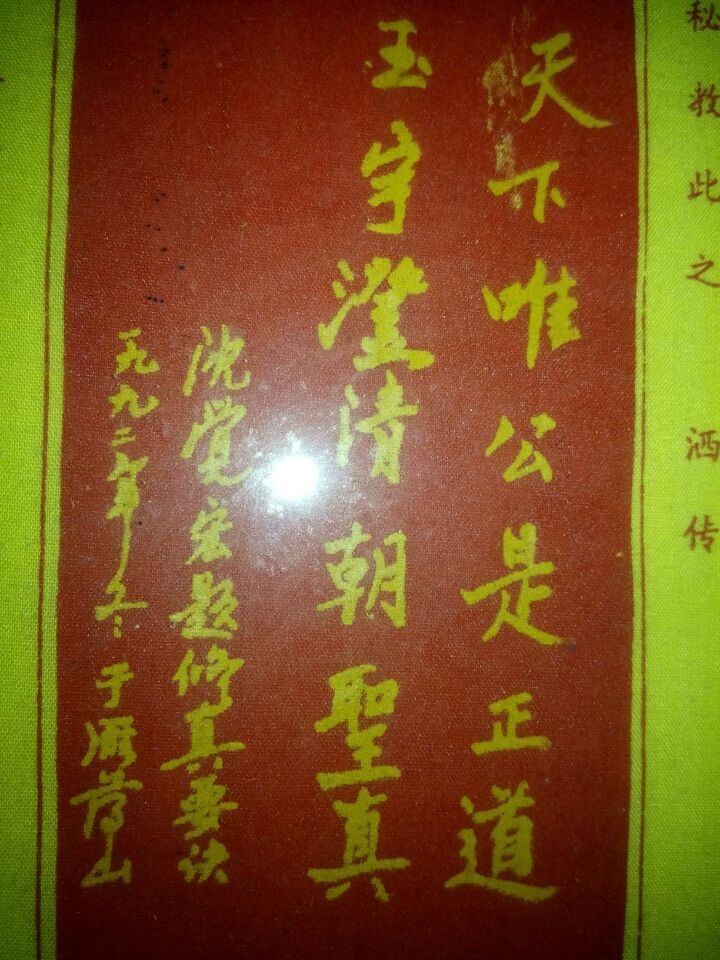 秘救此之 洒传
天下唯公是正道
玉宇澄清朝聖真
沈觉宏题修真要诀
一九九二年冬于山